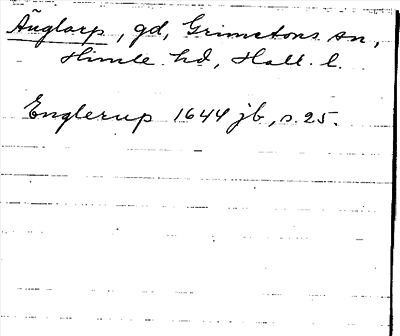 Äuglarp, gd, Grimetons sn,
Himle hd, Hall. l.
Englerup 1644 jb, s. 25.